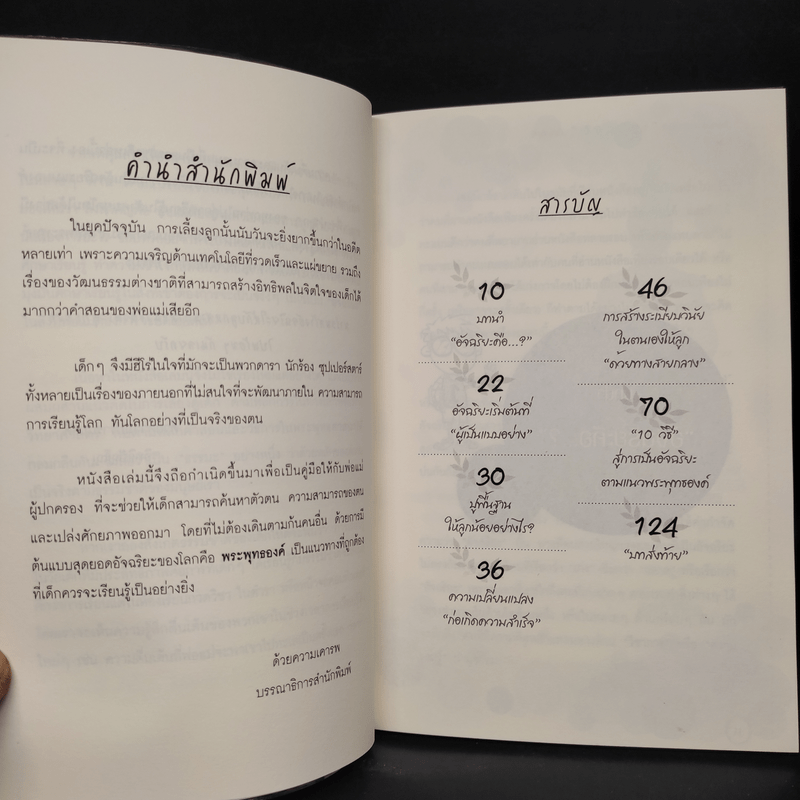 คำนำสำนักพิมพ์
ในยุคปัจจุบัน การเลี้ยงลูกนั้นนับวันจะยิ่งยากขึ้นกว่าในอดีต
หลายเท่า เพราะความเจริญด้านเทคโนโลยีที่รวดเร็วและแผ่ขยาย รวมถึง
เรื่องของวัฒนธรรมต่างชาติที่สามารถสร้างอิทธิพลในจิตใจของเด็กได้
มากกว่าคำสอนของพ่อแม่เสียอีก
เด็กๆ จึงมีฮีโร่ในใจที่มักจะเป็นพวกดารา นักร้อง ซุปเปอร์สตาร์
ทั้งหลายเป็นเรื่องของภายนอกที่ไม่สนใจที่จะพัฒนาภายใน ความสามารถ
การเรียนรู้โลก ทันโลกอย่างที่เป็นจริงของตน
หนังสือเล่มนี้จึงถือกำเนิดขึ้นมาเพื่อเป็นคู่มือให้กับพ่อแม่
ผู้ปกครอง ที่จะช่วยให้เด็กสามารถค้นหาตัวตน ความสามารถของตน
และเปล่งศักยภาพออกมา โดยที่ไม่ต้องเดินตามก้นคนอื่น ด้วยการมี
ต้นแบบสุดยอดอัจฉริยะของโลกคือ พระพุทธองค์ เป็นแนวทางที่ถูกต้อง
ที่เด็กควรจะเรียนรู้เป็นอย่างยิ่ง
ด้วยความเคารพ
บรรณาธิการสำนักพิมพ์
สารบัญ
10
บทนำ
"อัจฉริยะคือ...?"
22
อัจฉริยะเริ่มต้นที่
"ผู้เป็นแบบอย่าง"
30
ปูพื้นฐาน
ให้ลูกน้อยอย่างไร?
36
ความเปลี่ยนแปลง
"ก่อเกิดความสำเร็จ"
46
การสร้างระเบียบวินัย
ในตนเองให้ลูก
"ด้วยทางสายกลาง"
70
"10 วิธี"
สู่การเป็นอัจฉริยะ
ตามแนวพระพุทธองค์
124
"บทส่งท้าย"